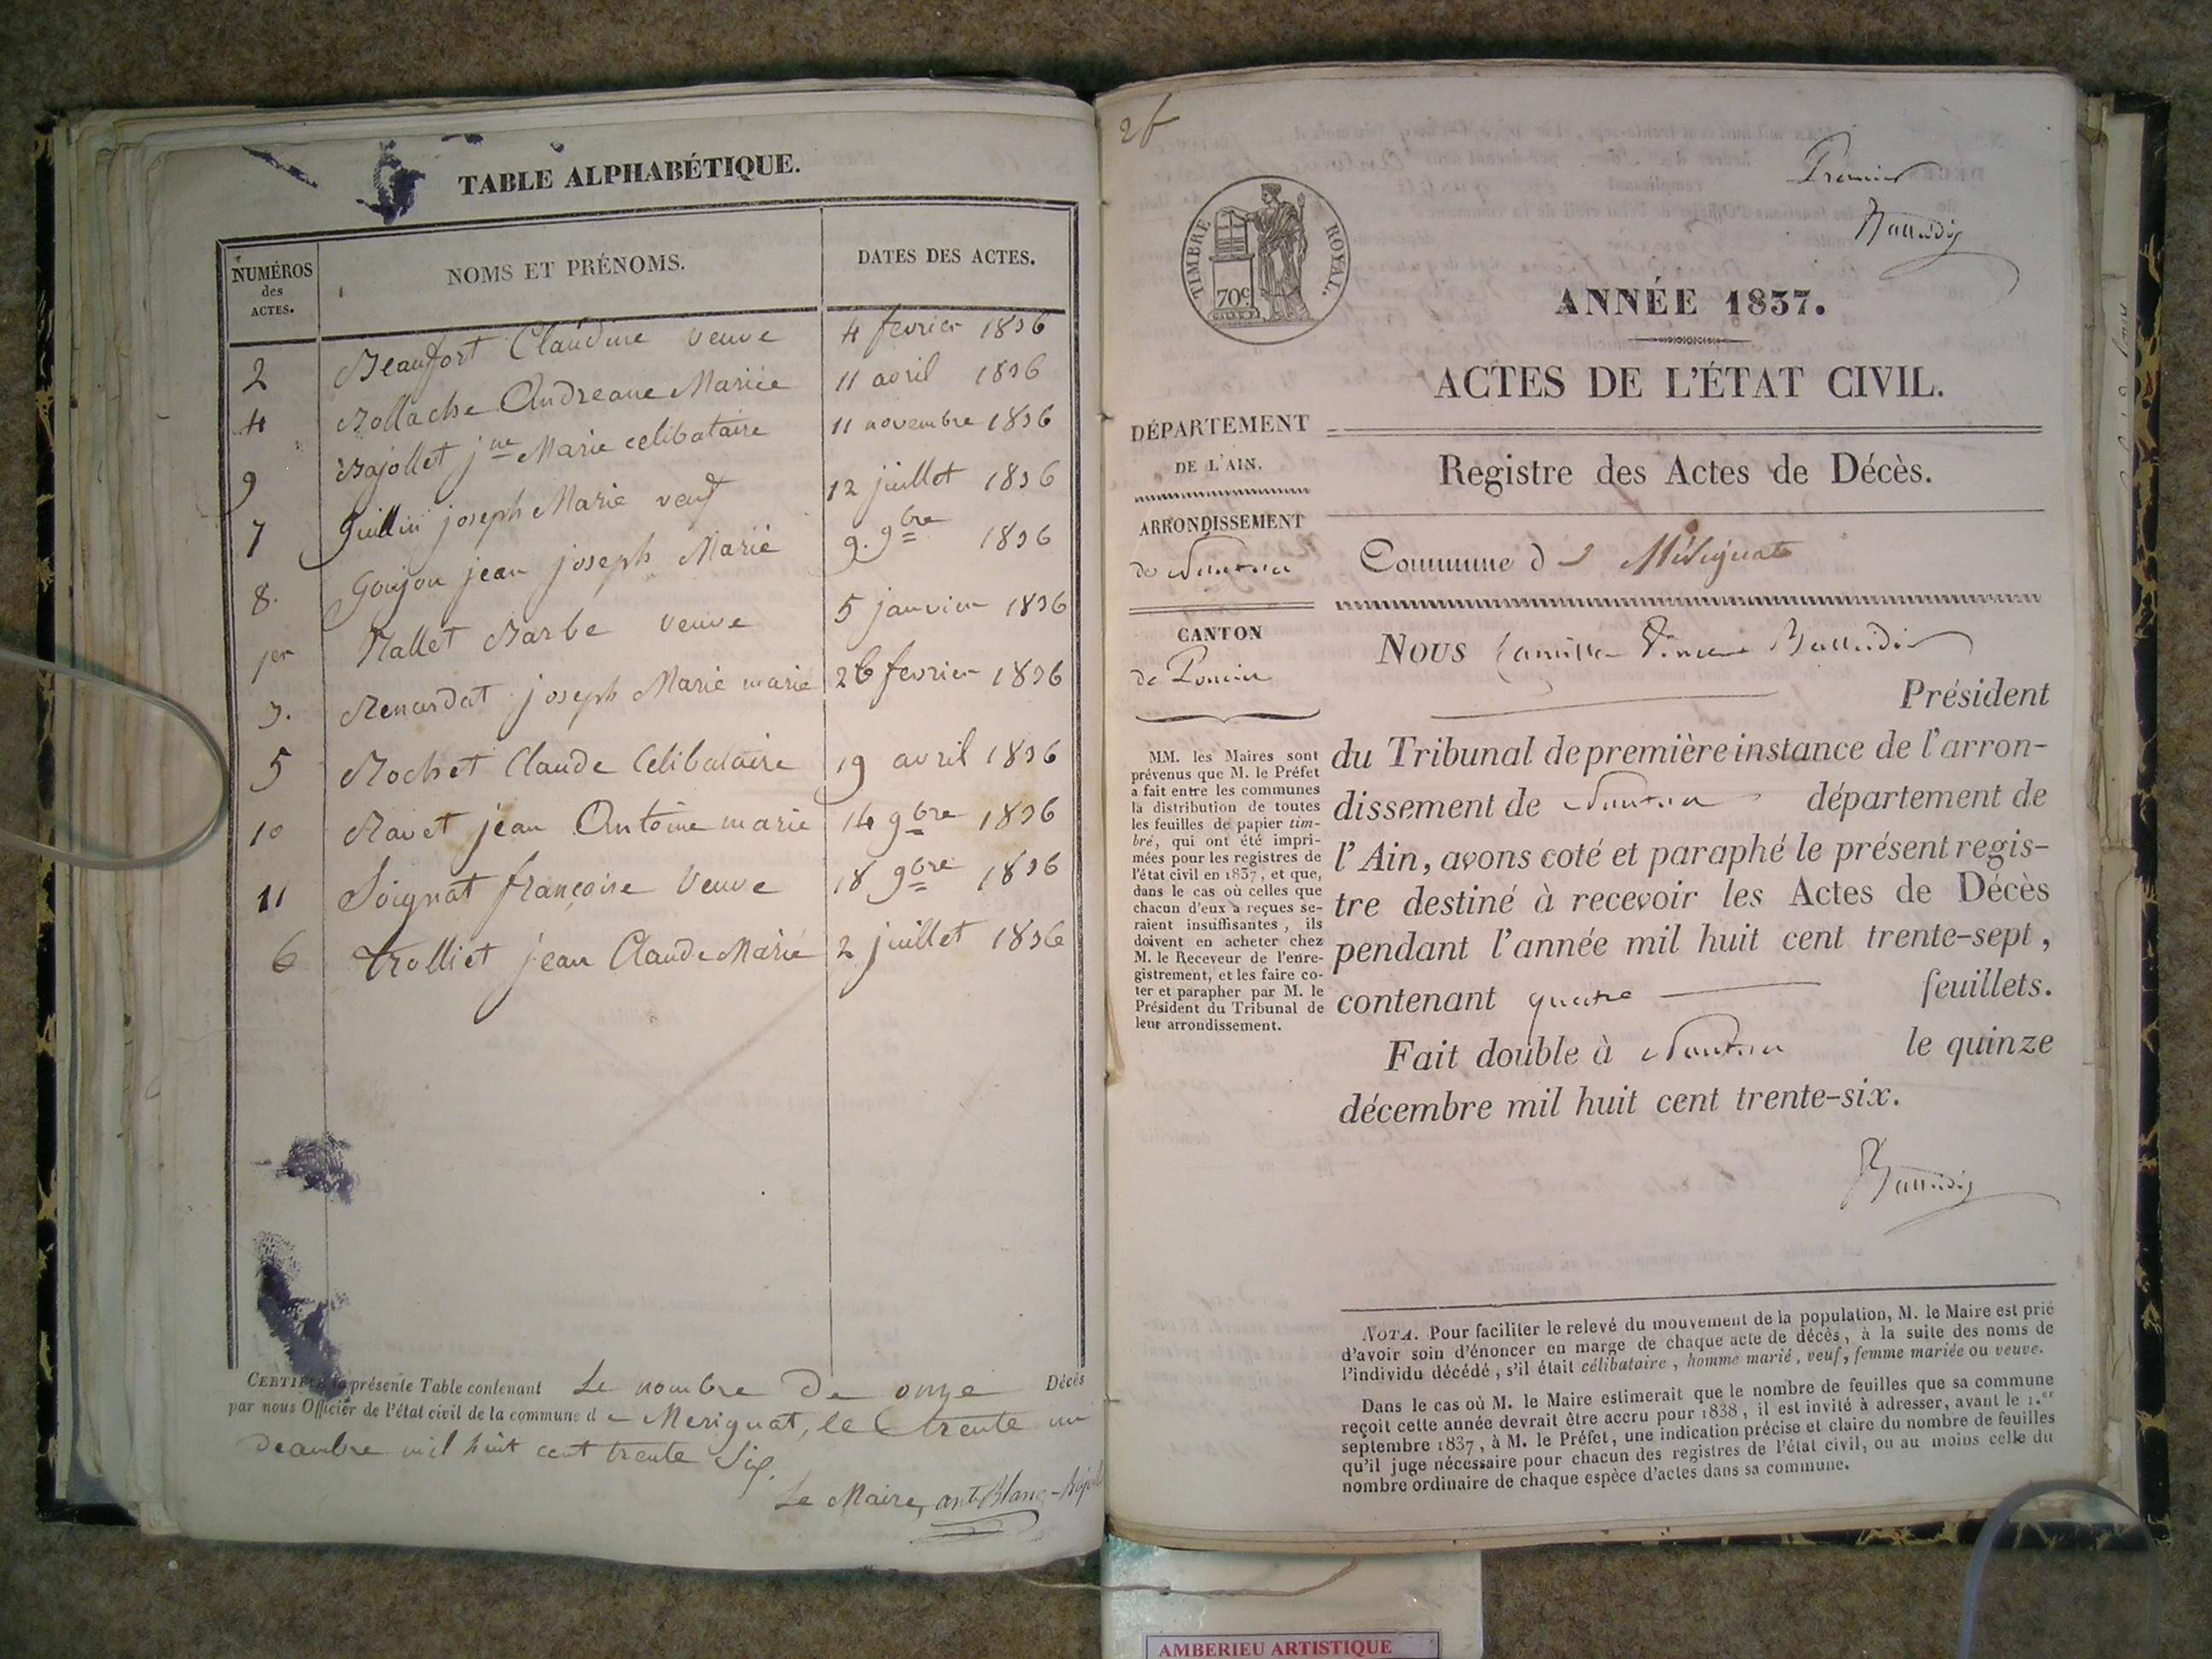 TABLE ALPHABÉTIQUE.
NUMÉROS des ACTES.
NOMS ET PRÉNOMS.
DATES DES ACTES.
2 Beaufort Claudine veuve 4 fevrier 1836
4 Bollache Andreane Mariée 11 avril 1836
9 Bajollet jne Marie celibataire 11 novembre 1836
7 Guillin joseph Marie veuf 12 juillet 1836
8. Goujon jean joseph Marié 9. 9bre 1836
1er Mallet Barbe veuve 5 janvier 1836
3. Renardat joseph Marie marié 26 fevrier 1836
5 Rochet Claude Celibataire 19 avril 1836
10 Ravet jean Antoine marié 14 9bre 1836
11 Soignat françoise Veuve 18 9bre 1836
6 trolliet jean Claude Marié 2 juillet 1836
CERTIFIÉ la présente Table contenant Le nombre De onze Décès
par nous Officier de l'état civil de la commune de Merignat, le trente un
decembre mil huit cent trente Six.
Le Maire, ant. Blanc-
Premier
TIMBRE ROYAL.
70c
ANNÉE 1837.
ACTES DE L'ÉTAT CIVIL.
DÉPARTEMENT
DE L'AIN.
ARRONDISSEMENT
de Nantua
CANTON
de Poncin
MM. les Maires sont
prévenus que M. le Préfet
a fait entre les communes
la distribution de toutes
les feuilles de papier tim-
bré, qui ont été impri-
mées pour les registres de
l'état civil en 1837, et que,
dans le cas où celles que
chacun d'eux a reçues se-
raient insuffisantes, ils
doivent en acheter chez
M. le Receveur de l'enre-
gistrement, et les faire co-
ter et parapher par M. le
Président du Tribunal de
leur arrondissement.
Registre des Actes de Décès.
Commune de Mérignat
Nous Camille Vincent
Président
du Tribunal de première instance de l'arron-
dissement de Nantua département de
l'Ain, avons coté et paraphé le présent regis-
tre destiné à recevoir les Actes de Décès
pendant l'année mil huit cent trente-sept,
contenant quatre feuillets.
Fait double à Nantua le quinze
décembre mil huit cent trente-six.
NOTA. Pour faciliter le relevé du mouvement de la population, M. le Maire est prié
d'avoir soin d'énoncer en marge de chaque acte de décès, à la suite des noms de
l'individu décédé, s'il était célibataire, homme marié, veuf, femme mariée ou veuve.
Dans le cas où M. le Maire estimerait que le nombre de feuilles que sa commune
reçoit cette année devrait être accru pour 1838, il est invité à adresser, avant le 1.er
septembre 1837, à M. le Préfet, une indication précise et claire du nombre de feuilles
qu'il juge nécessaire pour chacun des registres de l'état civil, ou au moins celle du
nombre ordinaire de chaque espèce d'actes dans sa commune.
AMBERIEU ARTISTIQUE